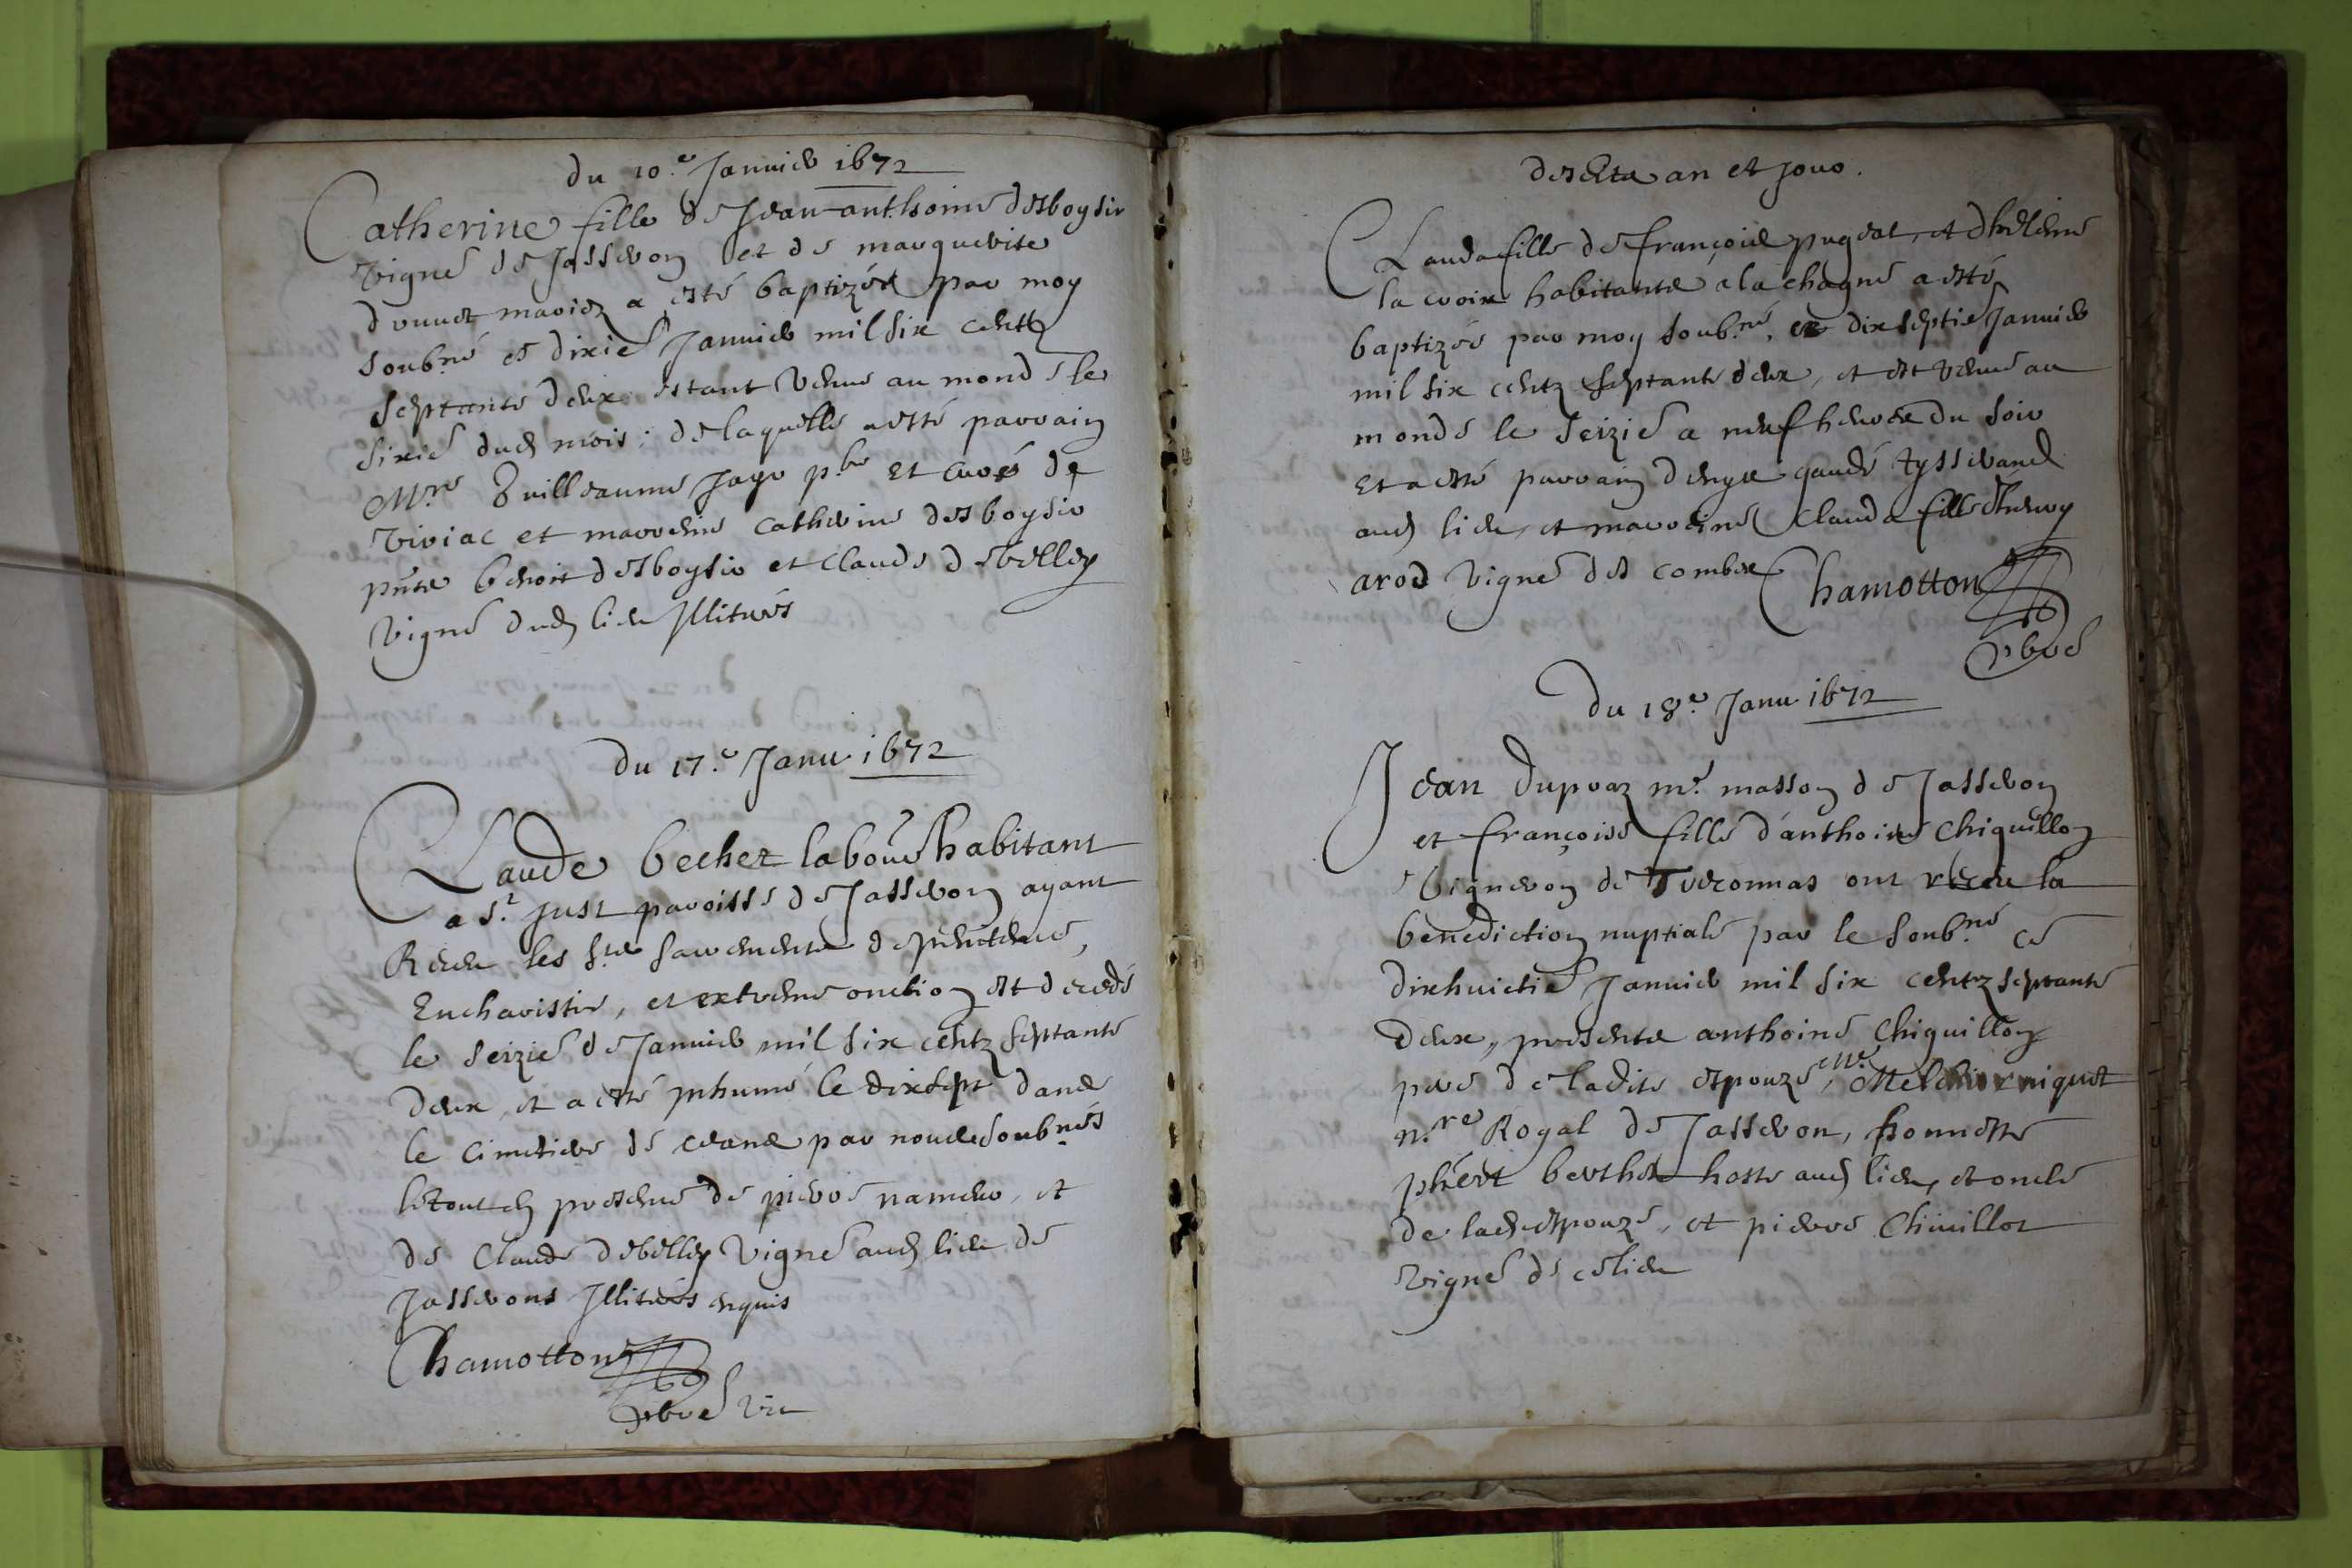 du 10.e Januier 1672
Catherine fille de Jean anthoine desboysir
vigne de Jasseron et de marguerite
druuet mariez a esté baptizée par moy
soub.né ce dixie Januier mil six centz
septante deux estant venue au monde le
sixie dud mois; de laquelle a esté parrain
M.re Guilleaume Jayr p.bre et curé de
viriac et marreine catherine desboysir
pnts benoit desboysir et claude debelley
vigne dud lieu Illitrés
du 17.e Janu 1672
Claude bechez labour habitant
a s.t Just paroisse de Jasseron ayant
Receu les s.tes sacrements de penitence,
Eucharistie, et extreme onction est decedé
le seizie de Januier mil six centz septante
deux, et a esté Inhumé le dixsept dans
le cimetiere de ceans par nous soub.nés
le tout en presence de pierre nameur, et
de Claude debelley vigne aud lieu de
Jasserons Illitrés enquis
Chamotton
pbre vic
desdits an et jour.
Clauda fille de françois pugeat, et d'helene
la croix habitants a la chagne a esté
baptizée par moy soub.né, ce dixseptie Januier
mil six centz septante deux, et est venue au
monde le seizie a neuf heures du soir
Et a esté parrain denys gaudé tysserand
aud lieu, et marreine Clauda fille
arod vigne des combes Chamotton
pbre
Du 18.e Janu 1672
Jean dupraz m.e masson de Jasseron
et françoise fille d'anthoine Chiquillon
vigneron de Treconnas ont receu la
benediction nuptiale par le soub.né ce
dixhuictie Januier mil six centz septante
deux, presents anthoine Chiquillon
pere de ladite espouze, M.e Melchior niquet
n.re Royal de Jasseron, honneste
phert berthet hoste aud lieu, et oncle
de lad espouze, et pierre Chiuillot
vigne de ce lieu